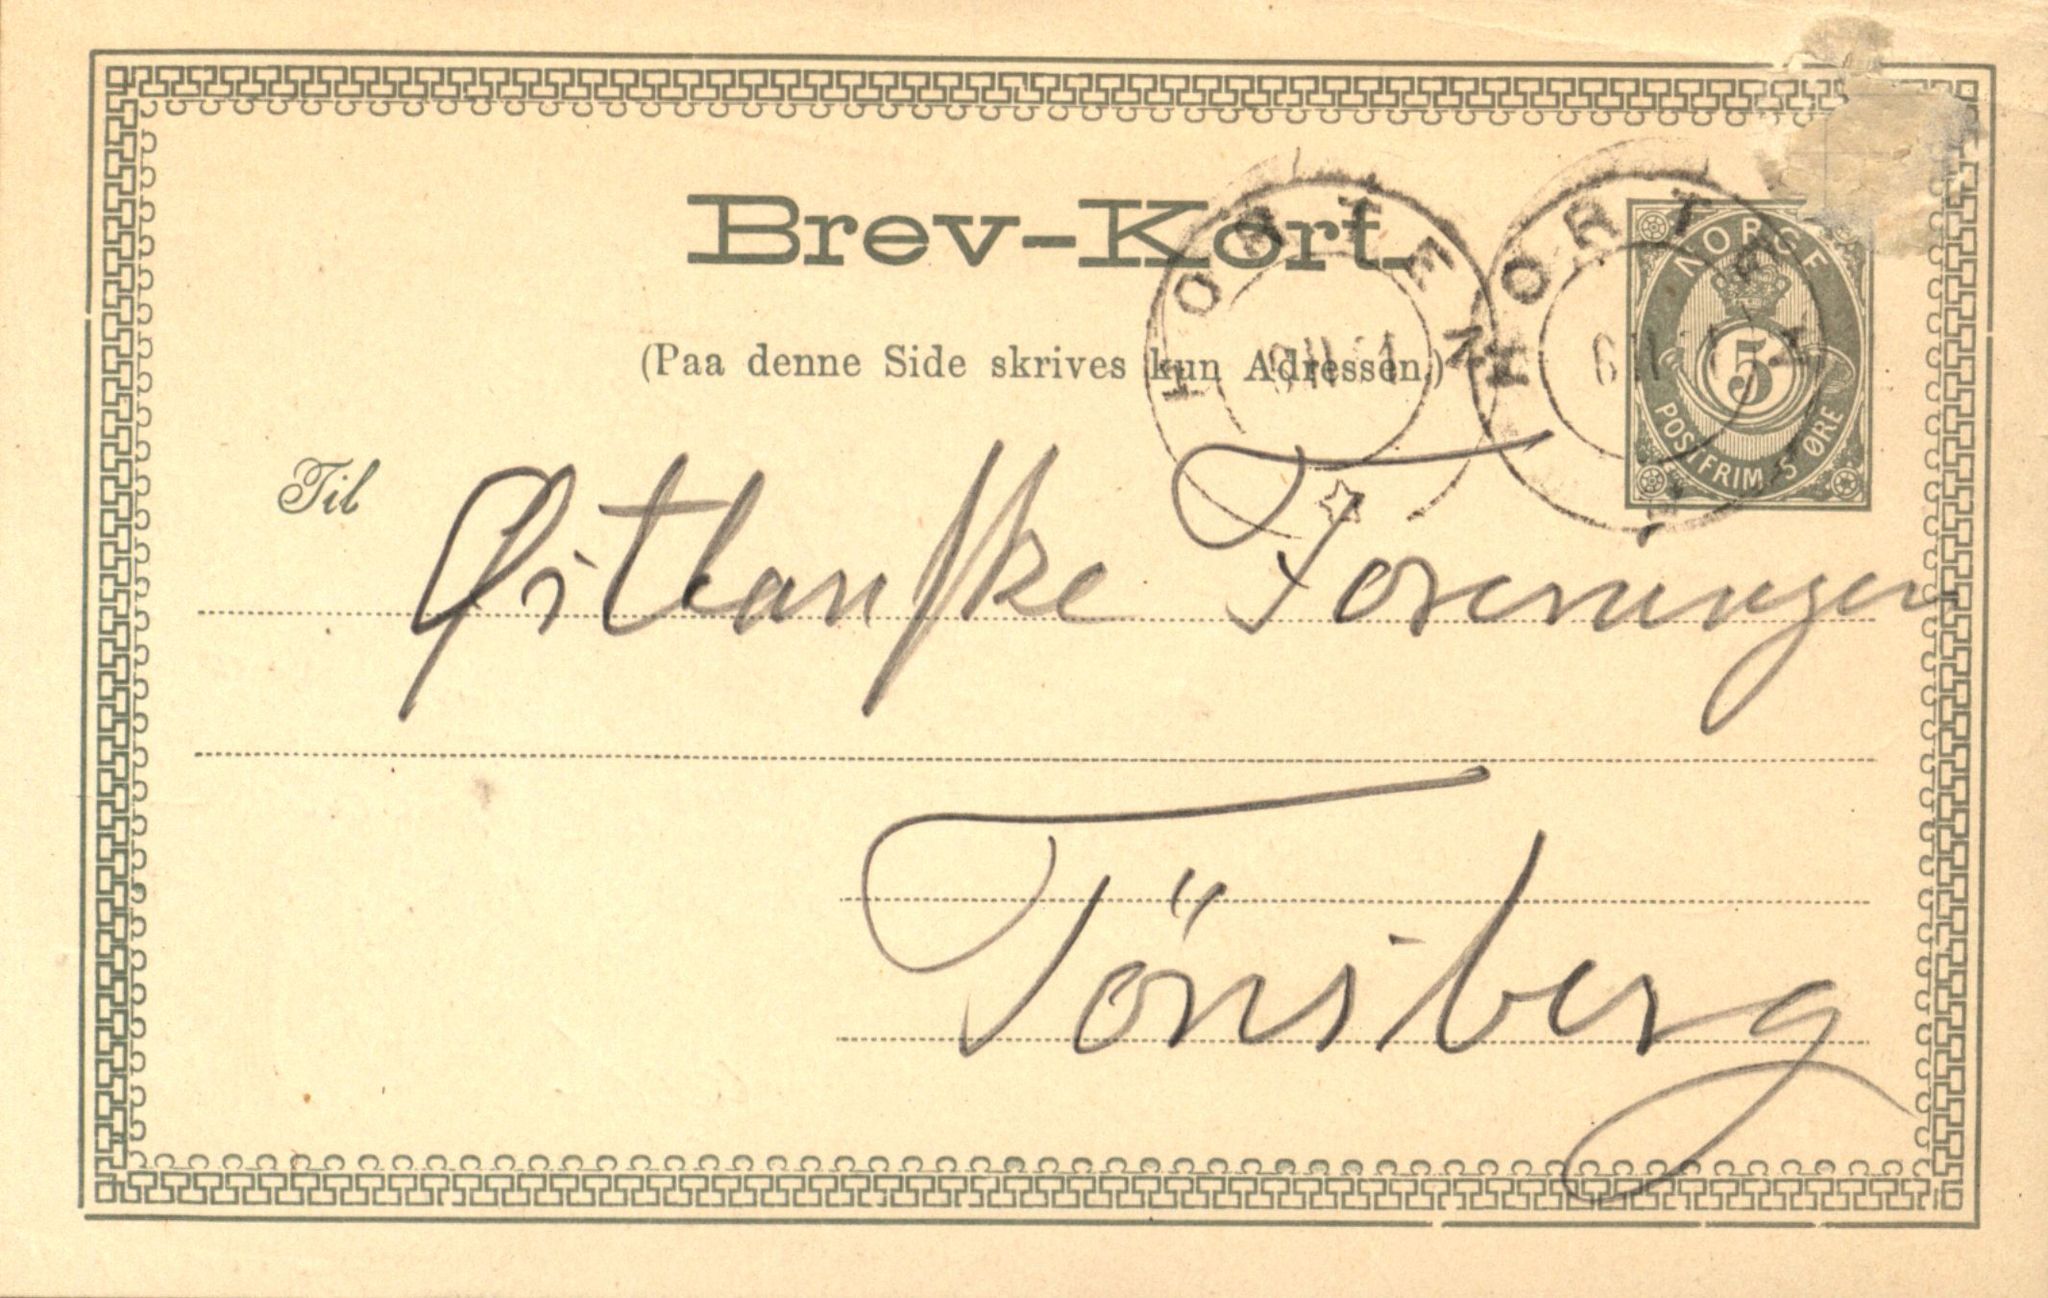 Brev-Kort.
(Paa denne Side skrives kun Adressen.)
HORTEN
HORTEN
NORGE
5
POSTFRIM. 5 ØRE
Til
Østlanske Foreningen
Tönsberg